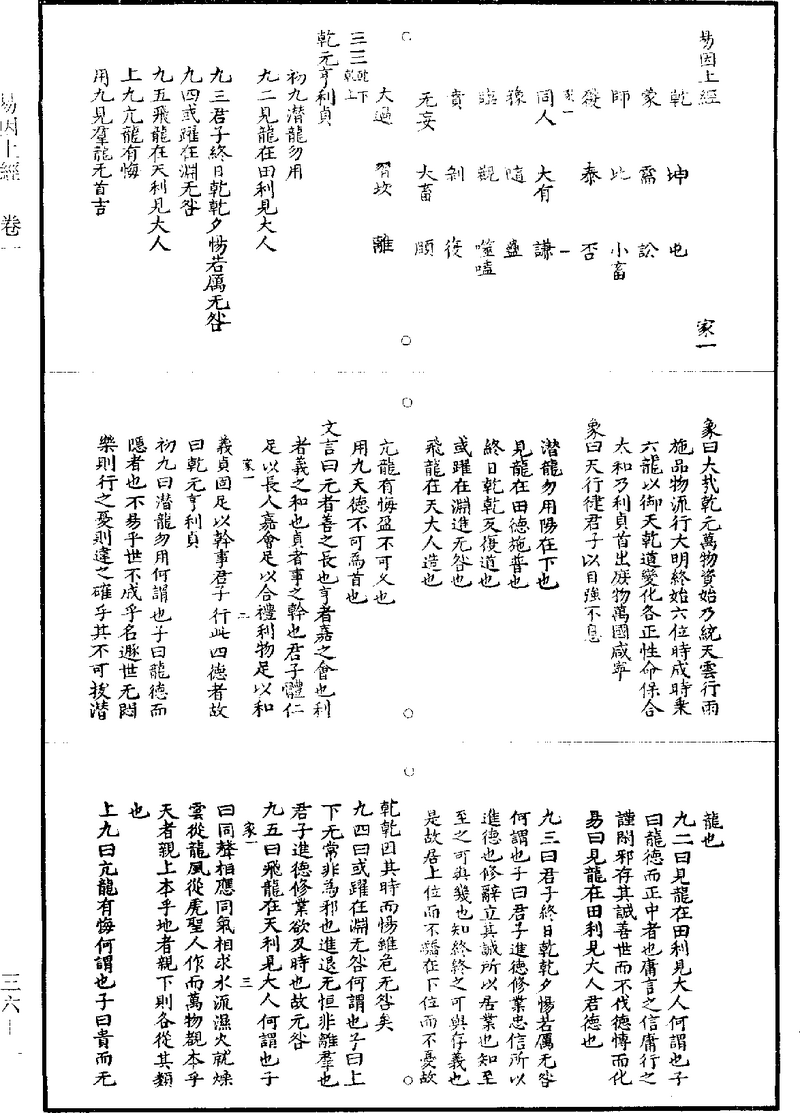 易因上經 家一
乾 坤 屯
蒙 需 訟
師 比 小畜
履 泰 否
家一 一
同人 大有 謙
豫 隨 蠱
臨 觀 噬嗑
賁 剝 復
无妄 大畜 頤
大過 習坎 離
☰☰乾下乾上
乾元亨利貞
初九潛龍勿用
九二見龍在田利見大人
九三君子終日乾乾夕惕若厲无咎
九四或躍在淵无咎
九五飛龍在天利見大人
上九亢龍有悔
用九見羣龍无首吉
彖曰大哉乾元萬物資始乃統天雲行雨
施品物流行大明終始六位時成時乘
六龍以御天乾道變化各正性命保合
太和乃利貞首出庶物萬國咸寧
象曰天行徤君子以自強不息
潛龍勿用陽在下也
見龍在田德施普也
終日乾乾反復道也
或躍在淵進无咎也
飛龍在天大人造也
亢龍有悔盈不可久也
用九天德不可為首也
文言曰元者善之長也亨者嘉之會也利
者義之和也貞者事之幹也君子體仁
足以長人嘉會足以合禮利物足以和
家一 二
義貞固足以幹事君子行此四德者故
曰乾元亨利貞
初九曰潛龍勿用何謂也子曰龍德而
隱者也不易乎世不成乎名遯世无悶
樂則行之憂則違之確乎其不可拔潛
龍也
九二曰見龍在田利見大人何謂也子
曰龍德而正中者也庸言之信庸行之
謹閑邪存其誠善世而不伐德博而化
易曰見龍在田利見大人君德也
九三曰君子終日乾乾夕惕若厲无咎
何謂也子曰君子進德修業忠信所以
進德也修辭立其誠所以居業也知至
至之可與幾也知終終之可與存義也
是故居上位而不驕在下位而不憂故
乾乾因其時而惕雖危无咎矣
九四曰或躍在淵无咎何謂也子曰上
下无常非為邪也進退无恒非離羣也
君子進德修業欲及時也故无咎
九五曰飛龍在天利見大人何謂也子
家一 三
曰同聲相應同氣相求水流濕火就燥
雲從龍風從虎聖人作而萬物覩本乎
天者親上本乎地者親下則各從其類
也
上九曰亢龍有悔何謂也子曰貴而无
易因上經 卷一
三六—一